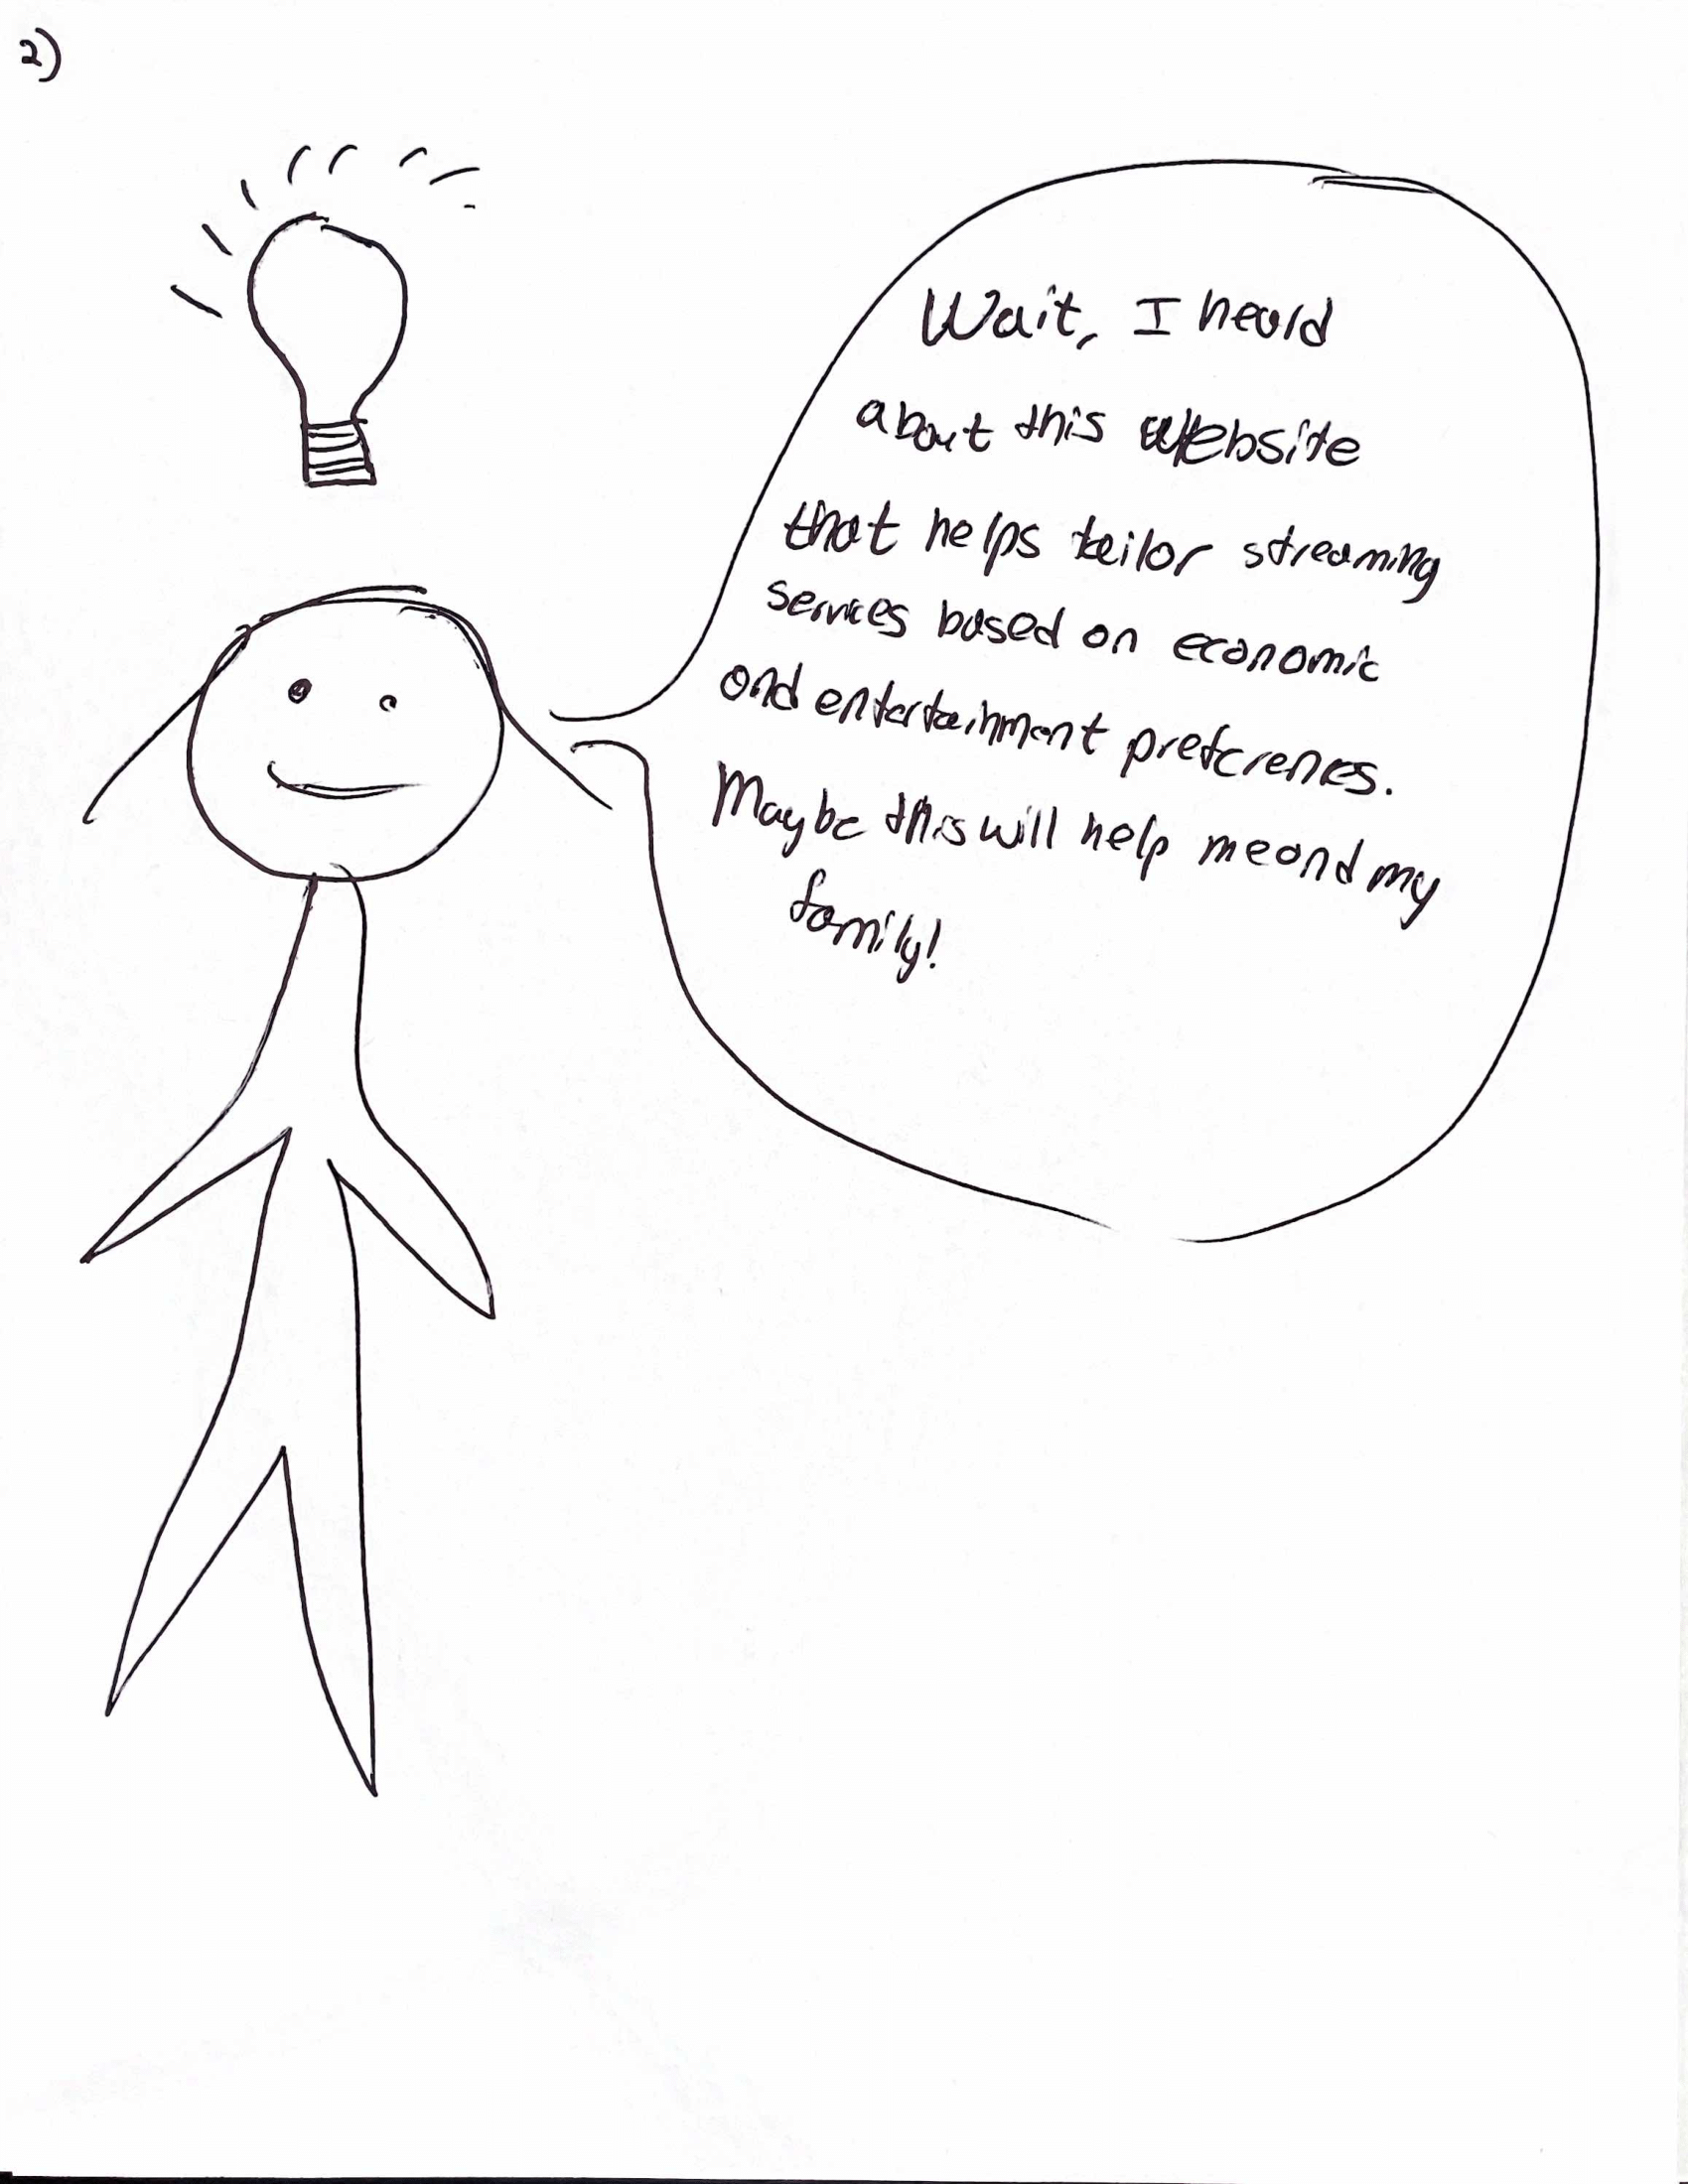 2)
Wait, I heard
about this website
that helps tailor streaming
services based on economic
and entertainment preferences.
Maybe this will help me and my
family!